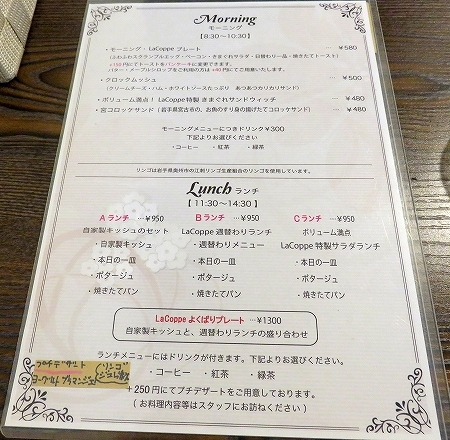 Morning
モーニング
【8:30~10:30】
・モーニング・LaCoppe プレート … ￥580
(ふわふわスクランブルエッグ・ベーコン・きまぐれサラダ・日替わり一品・焼きたてトースト)
+150円にてトーストをパンケーキに変更できます。
バター・メープルシロップをご利用の方は+40円にてご用意いたします。
・クロックムッシュ … ￥500
(クリームチーズ・ハム・ホワイトソースたっぷり あつあつカリカリサンド)
・ボリューム満点! LaCoppe特製 きまぐれサンドウィッチ … ￥480
・宮コロッケサンド(岩手県宮古市の、お魚のすり身の揚げたコロッケサンド) … ￥480
モーニングメニューにつきドリンク￥300
下記よりお選びください
・コーヒー ・紅茶 ・緑茶
リンゴは岩手県奥州市の江刺リンゴ生産組合のリンゴを使用しています。
Lunch ランチ
【11:30~14:30】
A ランチ …￥950
自家製キッシュのセット
・自家製キッシュ
・本日の一皿
・ポタージュ
・焼きたてパン
B ランチ …￥950
LaCoppe 週替わりランチ
・週替わりメニュー
・本日の一皿
・ポタージュ
・焼きたてパン
C ランチ …￥950
ボリューム満点
LaCoppe 特製サラダランチ
・本日の一皿
・ポタージュ
・焼きたてパン
LaCoppe よくばりプレート …￥1300
自家製キッシュと、週替わりランチの盛り合わせ
ランチメニューにはドリンクが付きます。下記よりお選びください。
・コーヒー ・紅茶 ・緑茶
+250円にてプチデザートをご用意しております。
(お料理内容等はスタッフにお訊ねください)
プチデザート
ヨーグルトブラマンジェ
リンゴ